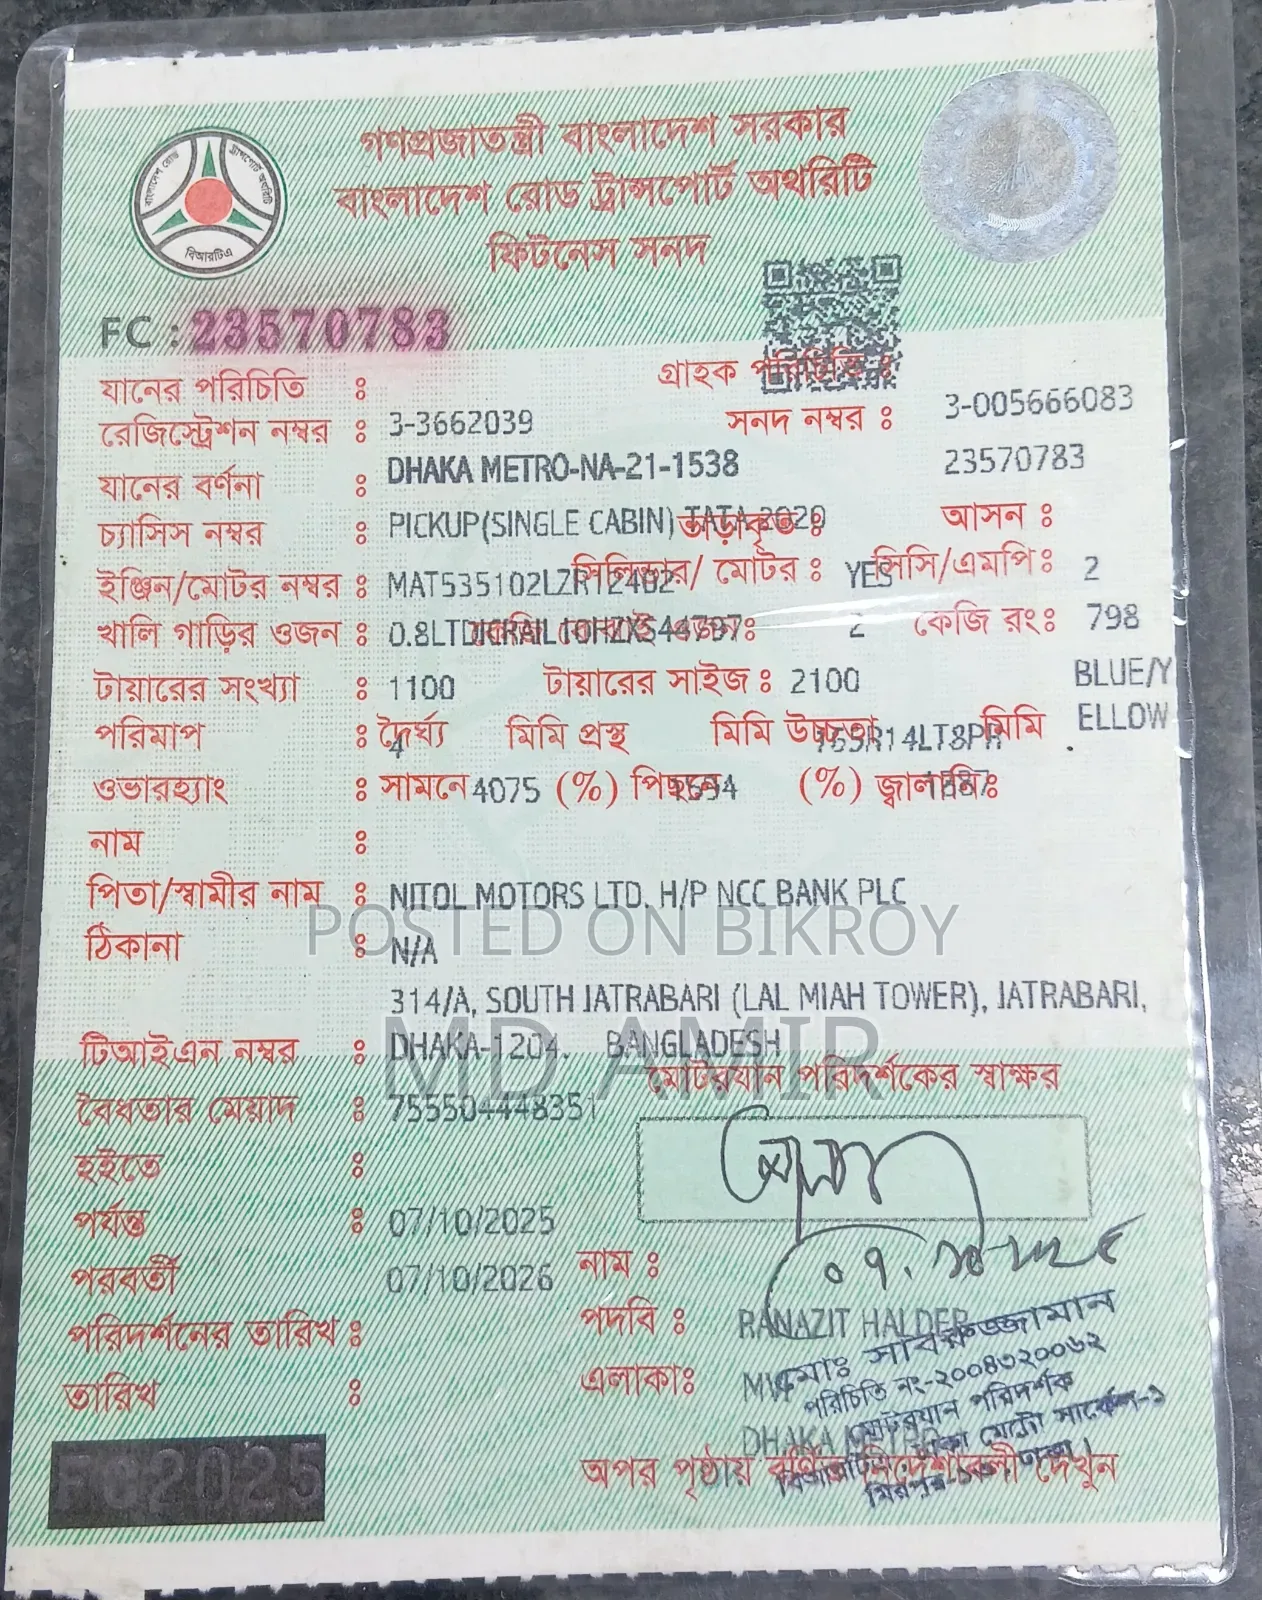 গণপ্রজাতন্ত্রী বাংলাদেশ সরকার
বাংলাদেশ রোড ট্রান্সপোর্ট অথরিটি
ফিটনেস সনদ
বিআরটিএ
FC : 23570783
যানের পরিচিতি : গ্রাহক পরিচিতি :
রেজিস্ট্রেশন নম্বর : 3-3662039 সনদ নম্বর : 3-005666083
যানের বর্ণনা : DHAKA METRO-NA-21-1538 23570783
চ্যাসিস নম্বর : PICKUP(SINGLE CABIN) TATA 2020 ভাড়াকৃত : আসন :
ইঞ্জিন/মোটর নম্বর : MAT535102LZR12402 সিলিন্ডার/ মোটর : YES সিসি/এমপি : 2
খালি গাড়ির ওজন : 2 কেজি রং : 798
টায়ারের সংখ্যা : 1100 টায়ারের সাইজ : 2100 BLUE/Y
পরিমাপ : দৈর্ঘ্য 4 মিমি প্রস্থ মিমি উচ্চতা 165R14LT8PR মিমি ELLOW
ওভারহ্যাং : সামনে 4075 (%) পিছনে (%) জ্বালানি :
নাম :
পিতা/স্বামীর নাম : NITOL MOTORS LTD. H/P NCC BANK PLC
POSTED ON BIKROY
ঠিকানা : N/A
314/A, SOUTH JATRABARI (LAL MIAH TOWER), JATRABARI,
MD AMIR
টিআইএন নম্বর : DHAKA-1204. BANGLADESH
মোটরযান পরিদর্শকের স্বাক্ষর
বৈধতার মেয়াদ : 755504448351
হইতে :
পর্যন্ত : 07/10/2025
পরবর্তী 07/10/2026 নাম :
পরিদর্শনের তারিখ : পদবি : RANAZIT HALDER
তারিখ : এলাকা :
পরিচিতি নং-২০০৪৩২০০৬২
মোটরযান পরিদর্শক
DHAKA METRO
FC 2025
অপর পৃষ্ঠায় বর্ণিত নির্দেশাবলী দেখুন